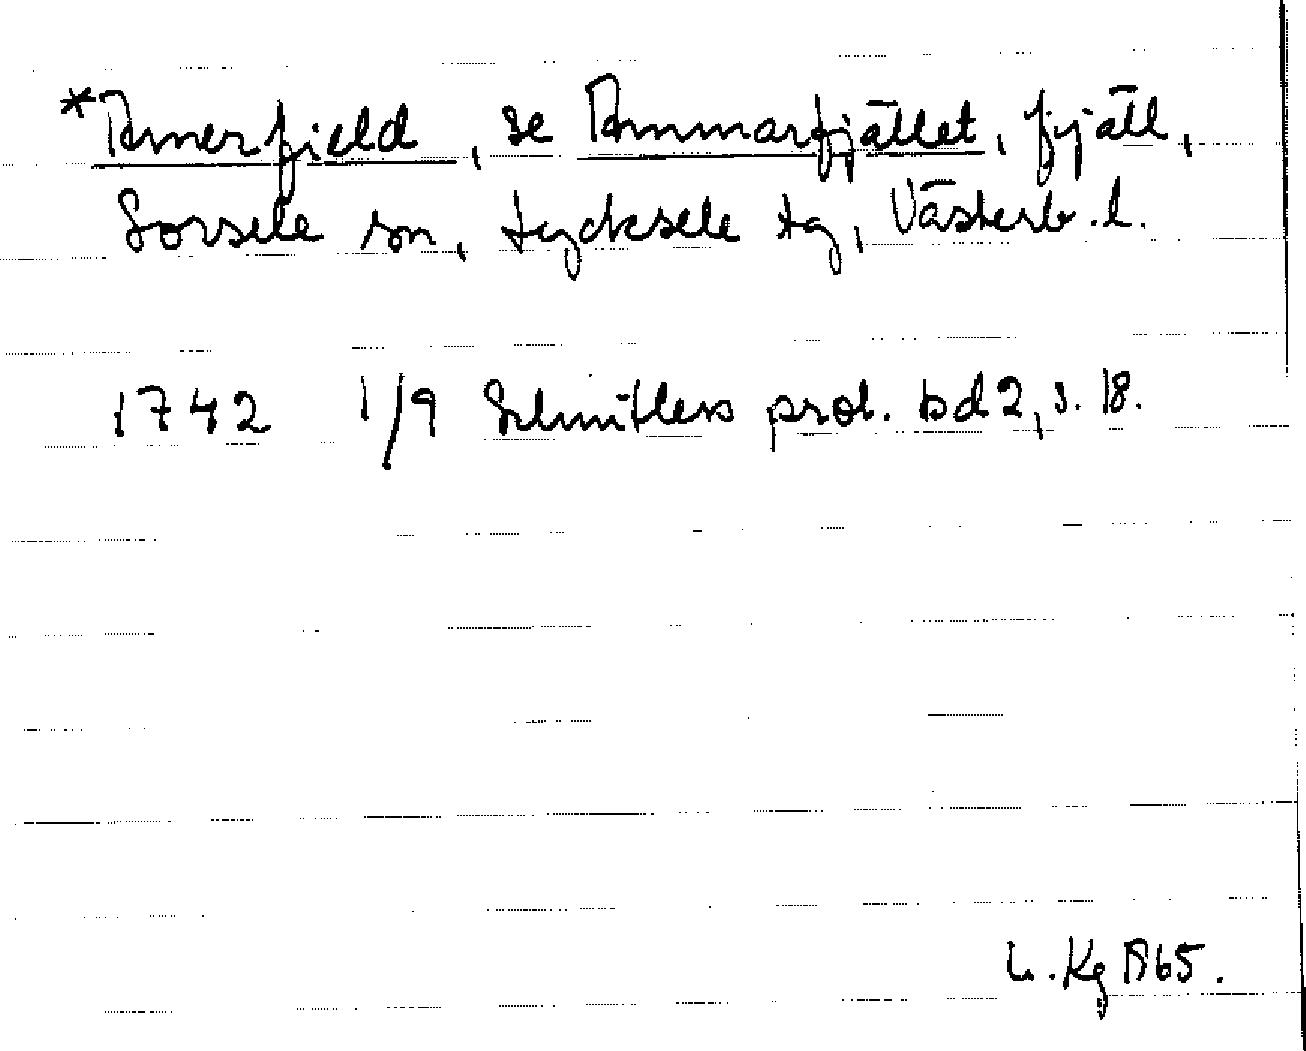 *Amerfjeld, se Ammarfjället, fjäll,
Sorsele sn, Lycksele tg, Västerb. l.
1742 1/9 Schnitlers prot. bd 2, s. 18.
Kg A65.